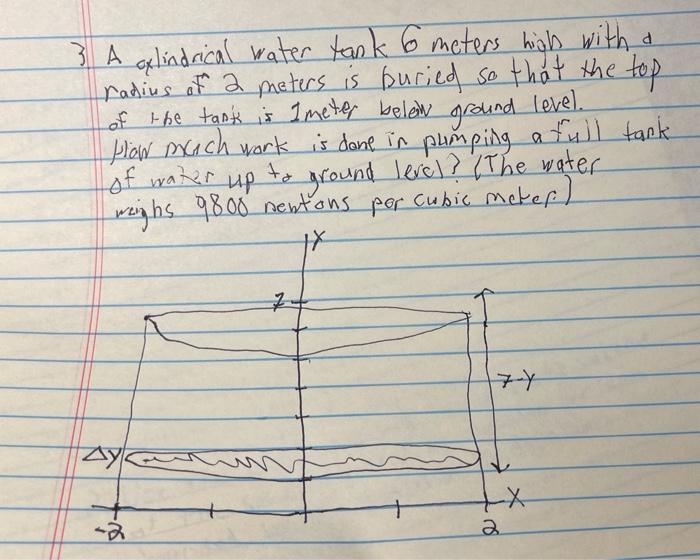 3 A cylindrical water tank 6 meters high with a
radius of 2 meters is buried so that the top
of the tank is 1meter below ground level.
How much work is done in pumping a full tank
of water up to ground level? (The water
weighs 9800 newtons per cubic meter.)
Y
7
7-Y
ΔY
X
-2
2